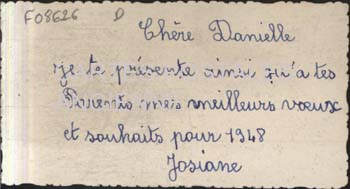 F08626 D
Chère Danielle
je te présente ainsi qu'a tes
Parents mes meilleurs vœux
et souhaits pour 1948
Josiane